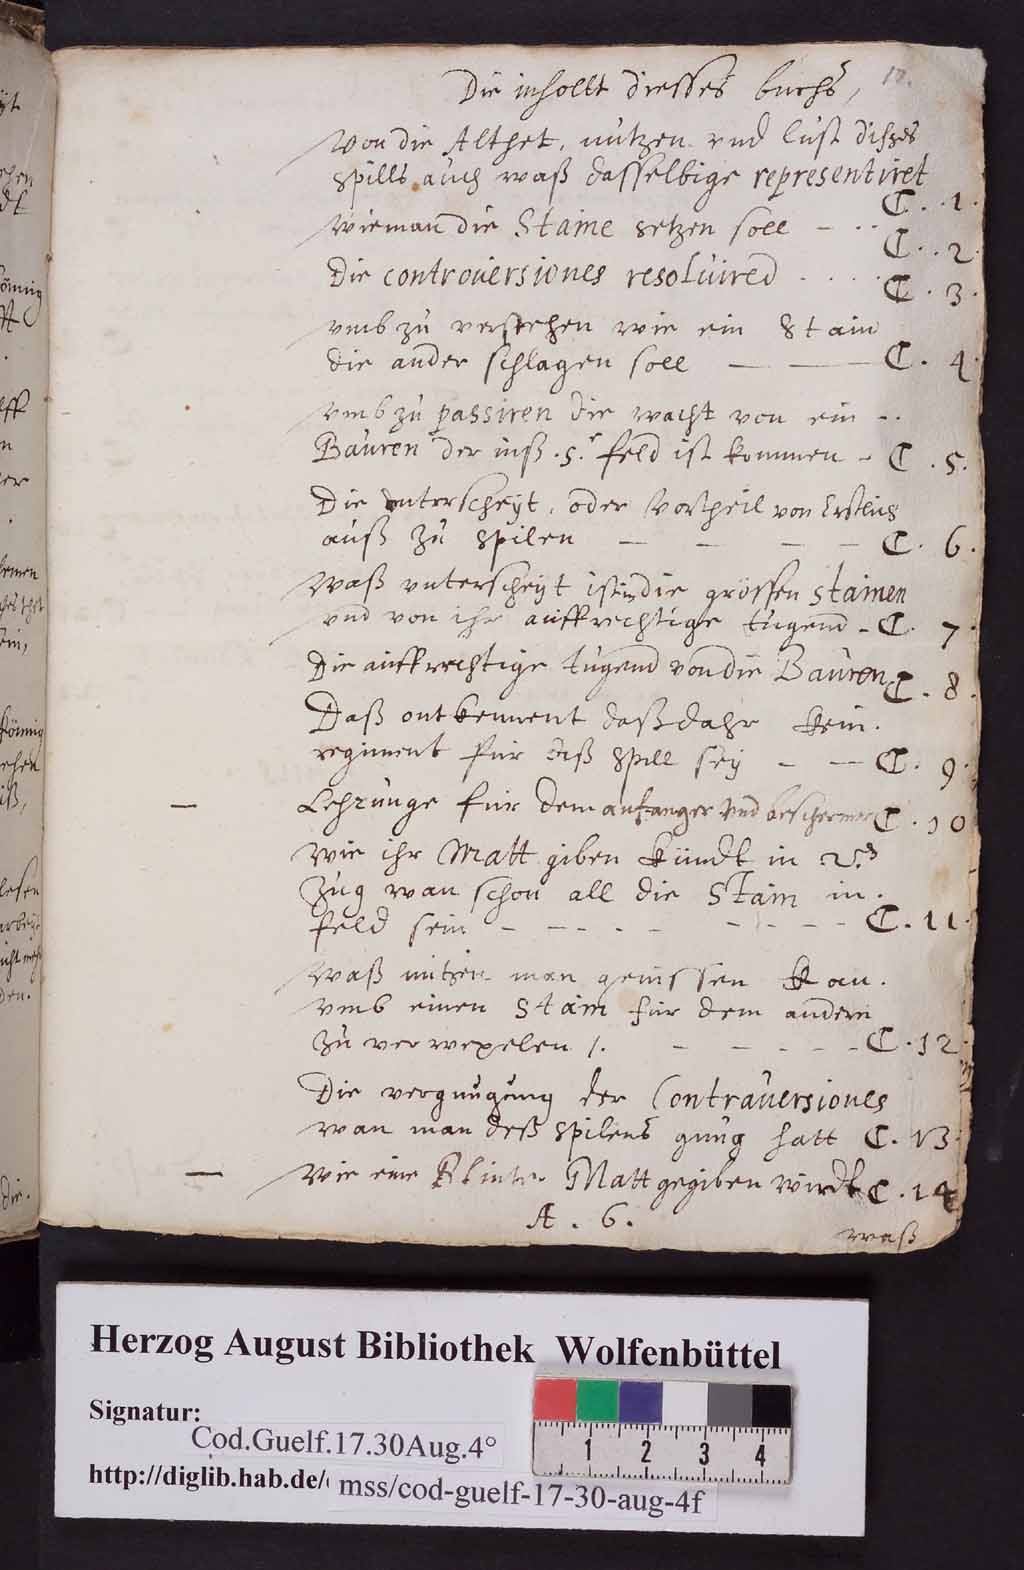 Die inhollt diesses buchs,
18.
Von die Althet, nutzen vnd lust disses
spills auch waß dasselbige representiret
C. 1.
wie man die Staine setzen soll - . .
C. . 2.
Die controuersiones resoluired . . . .
C. 3.
vmb zu verstehen wie ein Stain
die ander schlagen soll — — C. 4.
vmb zu passiren die wacht von ein - .
Bauren der inß .5.t feld ist kommen - C. 5.
Die vnterscheyt, oder Vortheil von Erstlich
auß zu spilen — - - — C. 6.
Waß vnterscheyt ist in die grössen stainen
vnd von ihr auffrechtige tugend - C. 7.
Die auffrechtige tugend von die Bauren C. 8.
Daß ontkennent daß dahr kein.
regiment für diß spill sey - — C. 9.
— Lehrunge für dem anfanger vnd beschermer C. 10
wie ihr Matt giben kündt in 2.
Zug wan schon all die Stain in.
feld sein - — - . - - - - - C. 11.
Waß nutzen man genissen kan.
vmb einen Stain für dem andern
zu verwexelen /. - - - - - C. 12.
Die vergnugung der Contrauersiones
wan man deß spilens gnug hatt C. 13.
— Wie eine Blinter Matt gegiben wirdt C. 14
A. 6.
waß
Herzog August Bibliothek Wolfenbüttel
Signatur:
Cod.Guelf.17.30Aug.4°
http://diglib.hab.de/
mss/cod-guelf-17-30-aug-4f
1 2 3 4